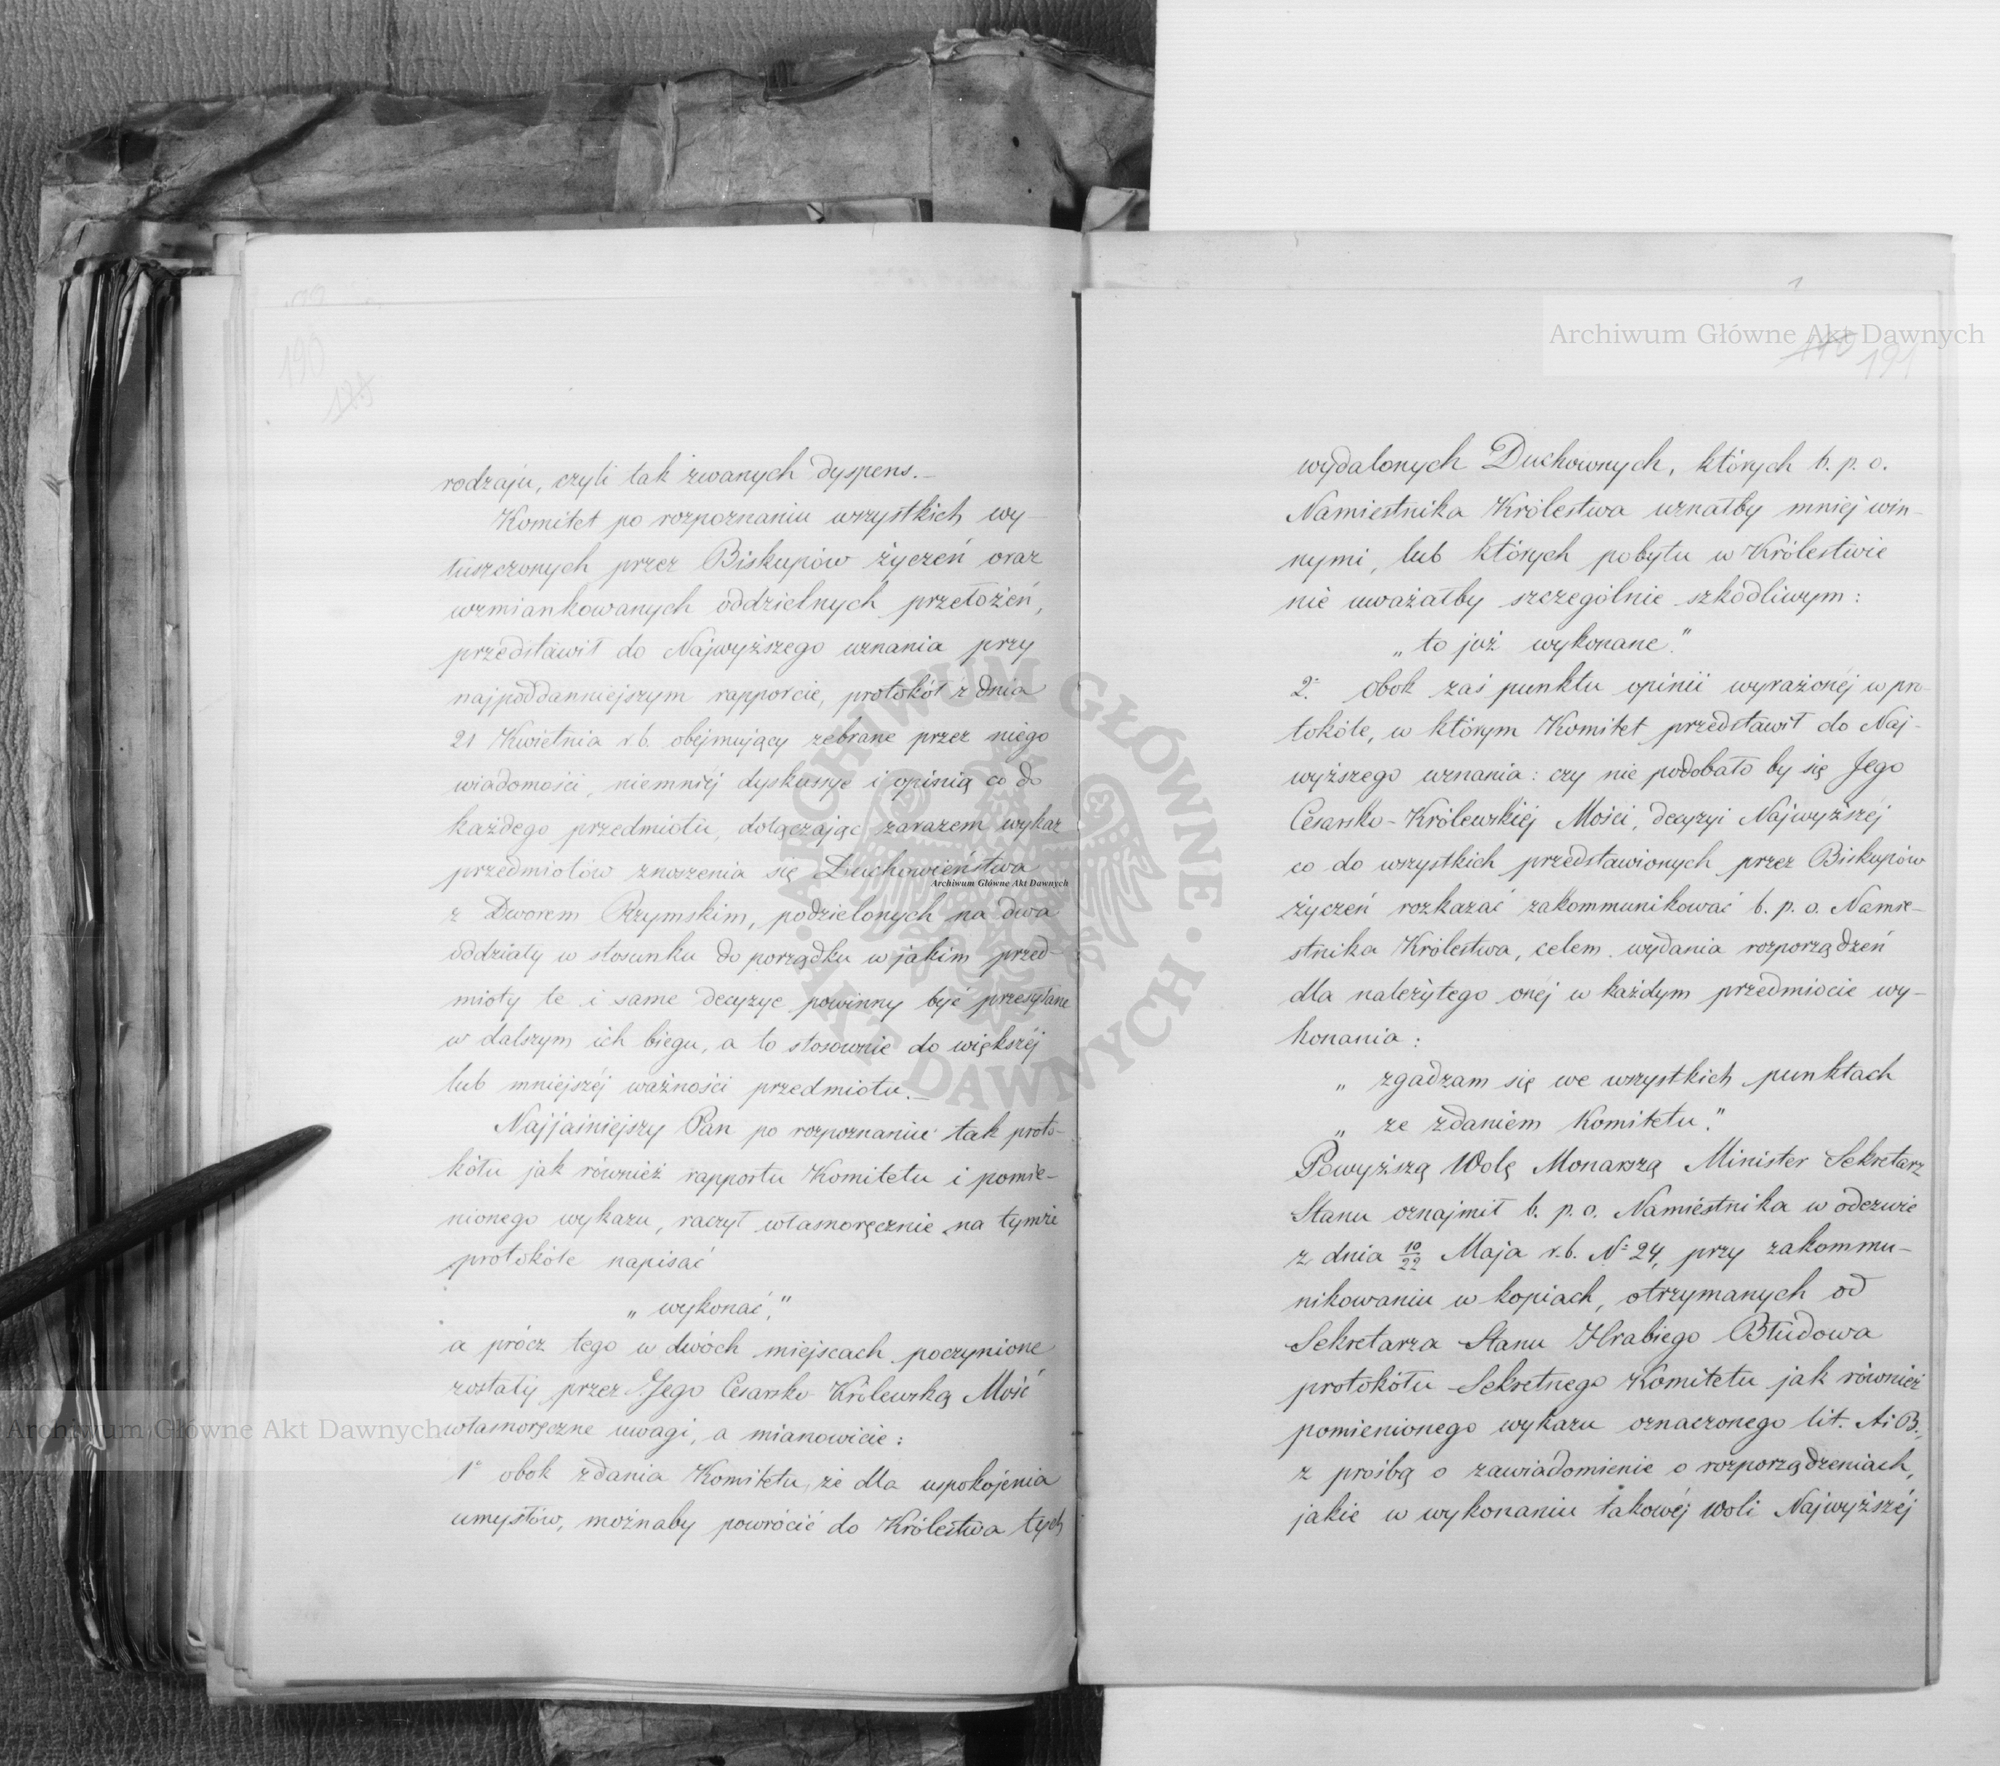 190
rodzaju, czyli tak zwanych dyspens.—
Komitet po rozpoznaniu wszystkich wy-
łuszczonych przez Biskupów życzeń oraz
wzmiankowanych oddzielnych przełożeń,
przedstawił do Najwyższego uznania przy
najpoddanniejszym rapporcie, protokół z dnia
21 Kwietnia r. b. obejmujący zebrane przez niego
wiadomości, niemniéj dyskussye i opinią co do
każdego przedmiotu, dołączając zarazem wykaz
przedmiotów znoszenia się Duchowieństwa
z Dworem Rzymskim, podzielonych na dwa
oddziały w stosunku do porządku w jakim przed-
mioty te i same decyzye powinny być przesyłane
w dalszym ich biegu, a to stosownie do większéj
lub mniéjszéj ważności przedmiotu.—
Najjaśniejszy Pan po rozpoznaniu tak proto-
kółu jak również rapportu Komitetu i pomie-
nionego wykazu, raczył własnoręcznie na tymże
protokóle napisać
„wykonać,"
a prócz tego w dwóch miejscach poczynione
zostały przez Jego Cesarsko Królewską Mość
własnoręczne uwagi, a mianowicie:
1° obok zdania Komitetu, że dla uspokojenia
umysłów, możnaby powrócić do Królestwa tych
191
wydalonych Duchownych, których b. p. o.
Namiestnika Królestwa uznałby mniéj win-
nymi, lub których pobytu w Królestwie
nie uważałby szczególnie szkodliwym:
„to już wykonane."
2° obok zaś punktu opinii wyrażonéj w pro-
tokóle, w którym Komitet przedstawił do Naj-
wyższego uznania: czy nie podobało by się Jego
Cesarsko-Królewskiéj Mości, decyzyi Najwyższéj
co do wszystkich przedstawionych przez Biskupów
życzeń rozkazać zakommunikować b. p. o. Namie-
stnika Królestwa, celem wydania rozporządzeń
dla należytego onéj w każdym przedmiocie wy-
konania:
„zgadzam się we wszystkich punktach
„ze zdaniem Komitetu."
Powyższą Wolę Monarszą Minister Sekretarz
Stanu oznajmił b. p. o. Namiéstnika w odezwie
z dnia 10/22 Maja r. b. № 24, przy zakommu-
nikowaniu w kopiach, otrzymanych od
Sekretarza Stanu Hrabiego Błudowa
protokółu Sekretnego Komitetu jak również
pomienionego wykazu oznaczonego lit. A i B.,
z prośbą o zawiadomienie o rozporządzeniach,
jakie w wykonaniu takowéj woli Najwyższéj
Archiwum Główne Akt Dawnych
Archiwum Główne Akt Dawnych
Archiwum Główne Akt Dawnych
ARCHIWUM GŁÓWNE · AKT DAWNYCH ·